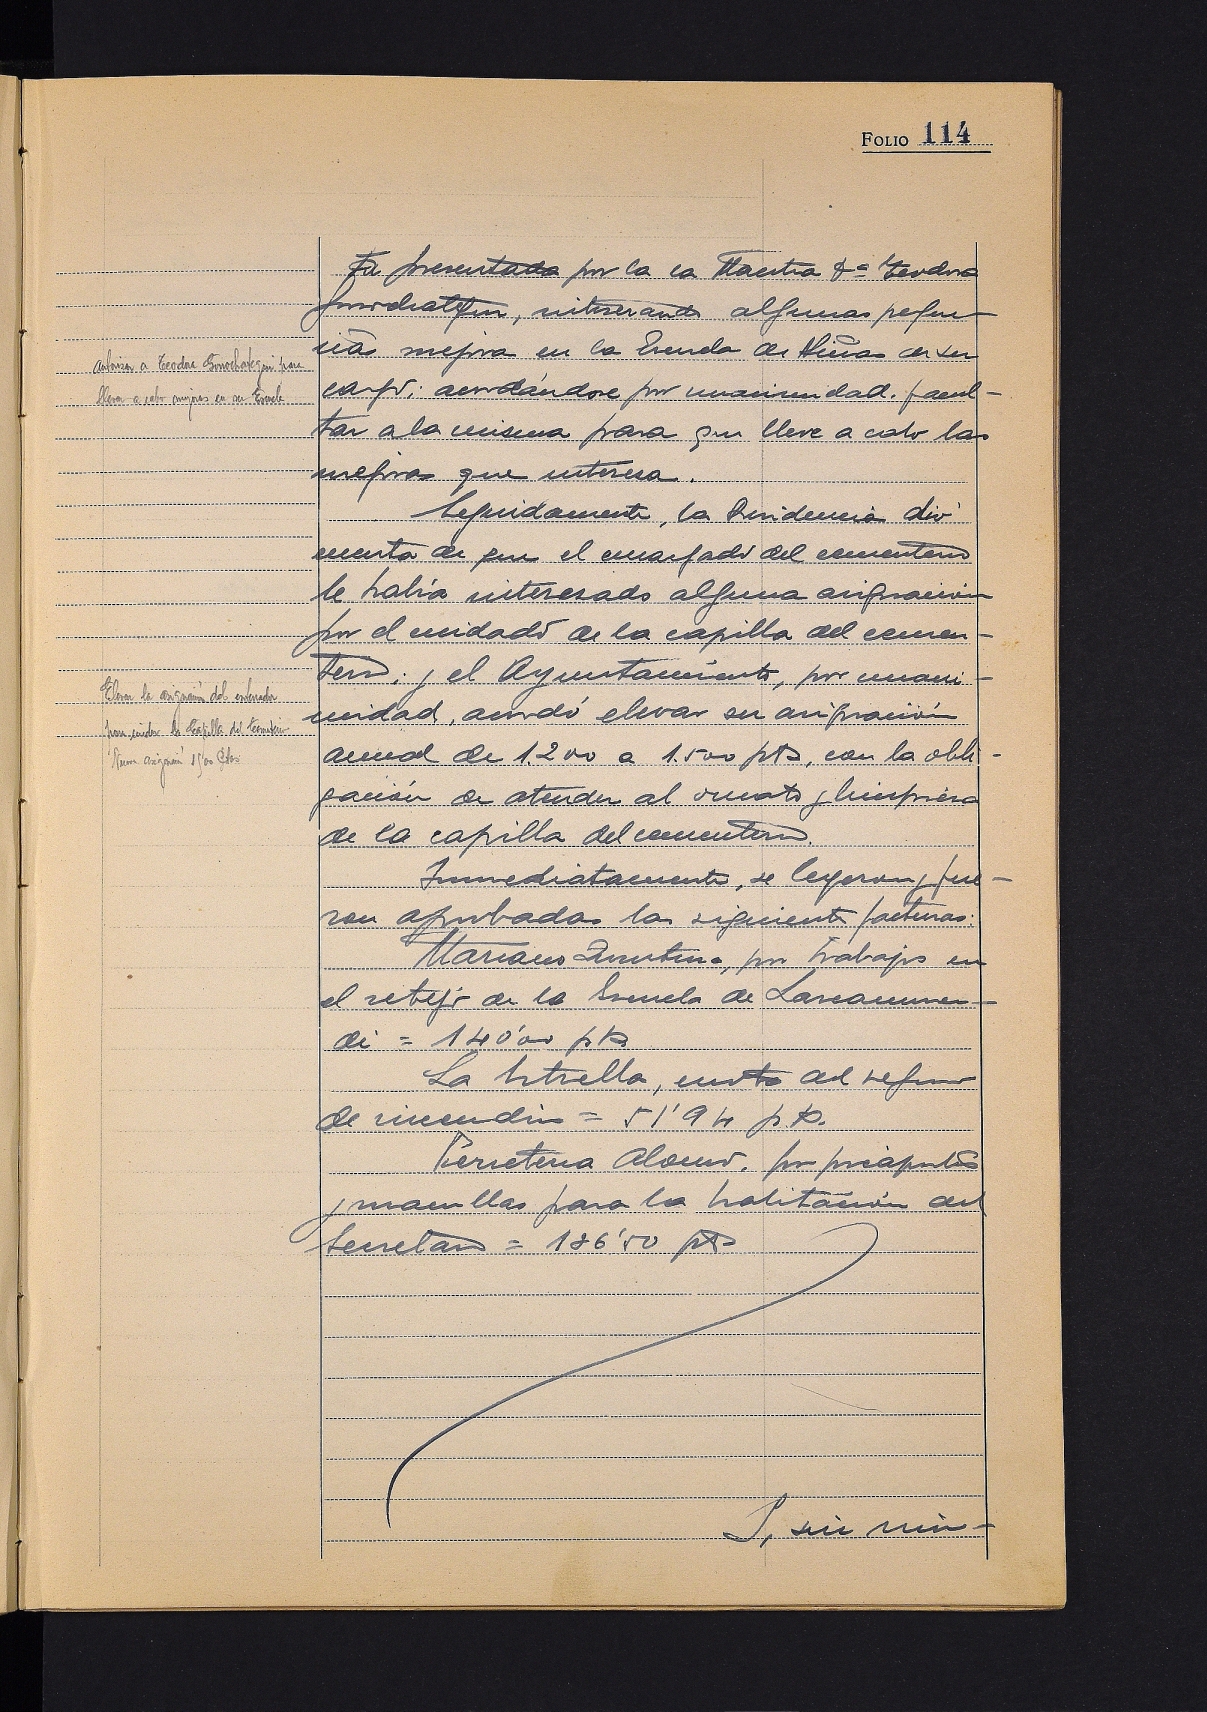 FOLIO 114
Fu presentada por la la Maestra Dª Teodora
Gorrochategui, interesando algunas peque-
ñas mejora en la Escuela de Niñas de su
cargo; acordándose por unanimidad, facul-
tar a la misma para que lleve a cabo las
mejoras que interesa.
Seguidamente, la Presidencia dió
cuenta de que el encargado del cementerio
le había interesado alguna asignación
por el cuidado de la capilla del cemen-
terio; y el Ayuntamiento, por unani-
midad, acordó elevar su asignación
anual de 1.200 a 1.500 pts, con la obli-
gación de atender al ornato y limpieza
de la capilla del cementerio.
Inmediatamente, se leyeron y fue-
ron aprobadas las siguiente facturas:
Mariano , por trabajos en
el retejo de la Escuela de
di = 140'00 pts
La Estrella, cuota del seguro
de incendios = 51'94 pts.
Ferreteria Alonso, por picaportes
y manillas para la habitación del
Secretario = 186'50 pts
Y, sin nin-
Autorizar a Teodora Gorrochategui para
llevar a cabo mejoras en su Escuela
Elevar la asignación del enterrador
para cuidar la Capilla del Cementerio
Nueva asignación 1500 Ptas